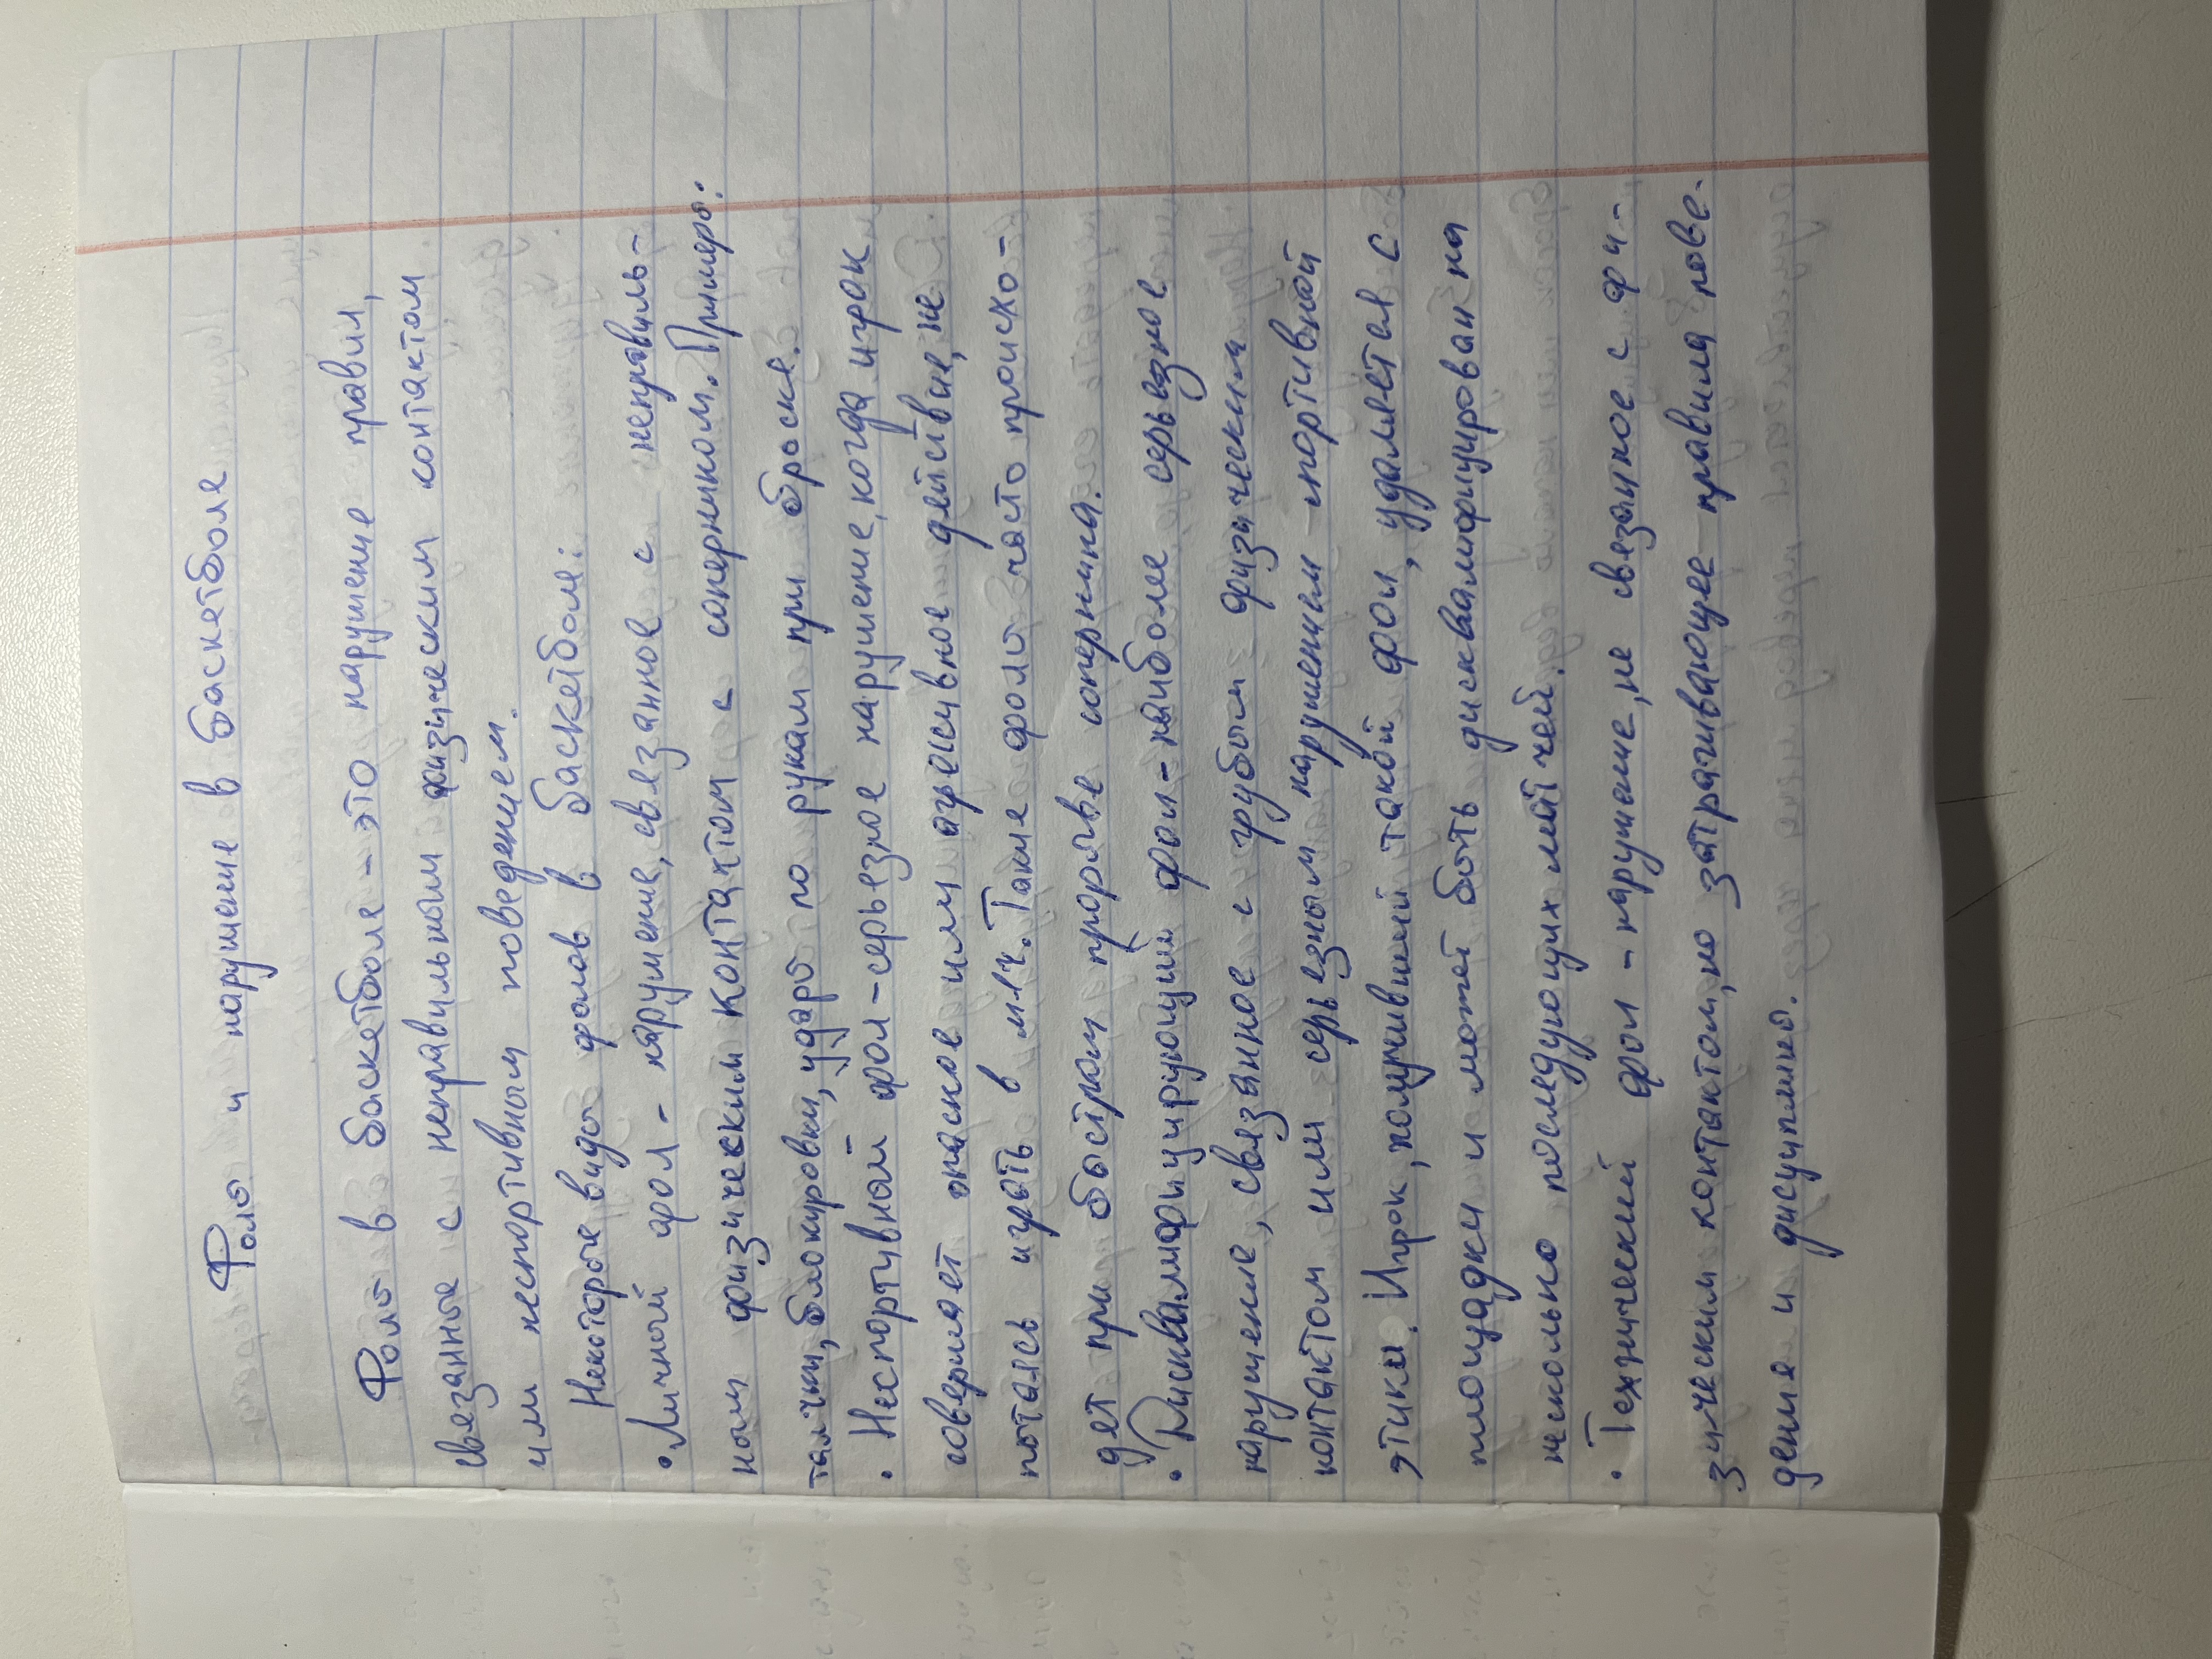 Фолы и нарушение в баскетболе
Фолы в баскетболе - это нарушение правил,
связанные с неправильным физическим контактом
или неспортивным поведением.
Некоторые виды фолов в баскетболе:
• Личный фол - нарушение, связанное с неправиль-
ным физическим контактом с соперником. Примеры:
талчки, блокировки, удары по рукам при броске.
• Неспортивный фол - серьезное нарушение, когда игрок
совершает опасное или агрессивное действие, не
пытаясь играть в мяч. Такие фолы часто происхо-
дят при быстром прорыве соперника.
• Дисквалифицирующий фол - наиболее серьезное
нарушение, связанное с грубым физическим
контактом или серьезным нарушением спортивной
этики. Игрок, получивший такой фол, удаляется с
площадки и может быть дисквалифицирован на
несколько последующих матчей.
• Технический фол - нарушение, не связанное с фи-
зическим контактом, но затрагивающее правила пове-
дения и дисциплины.